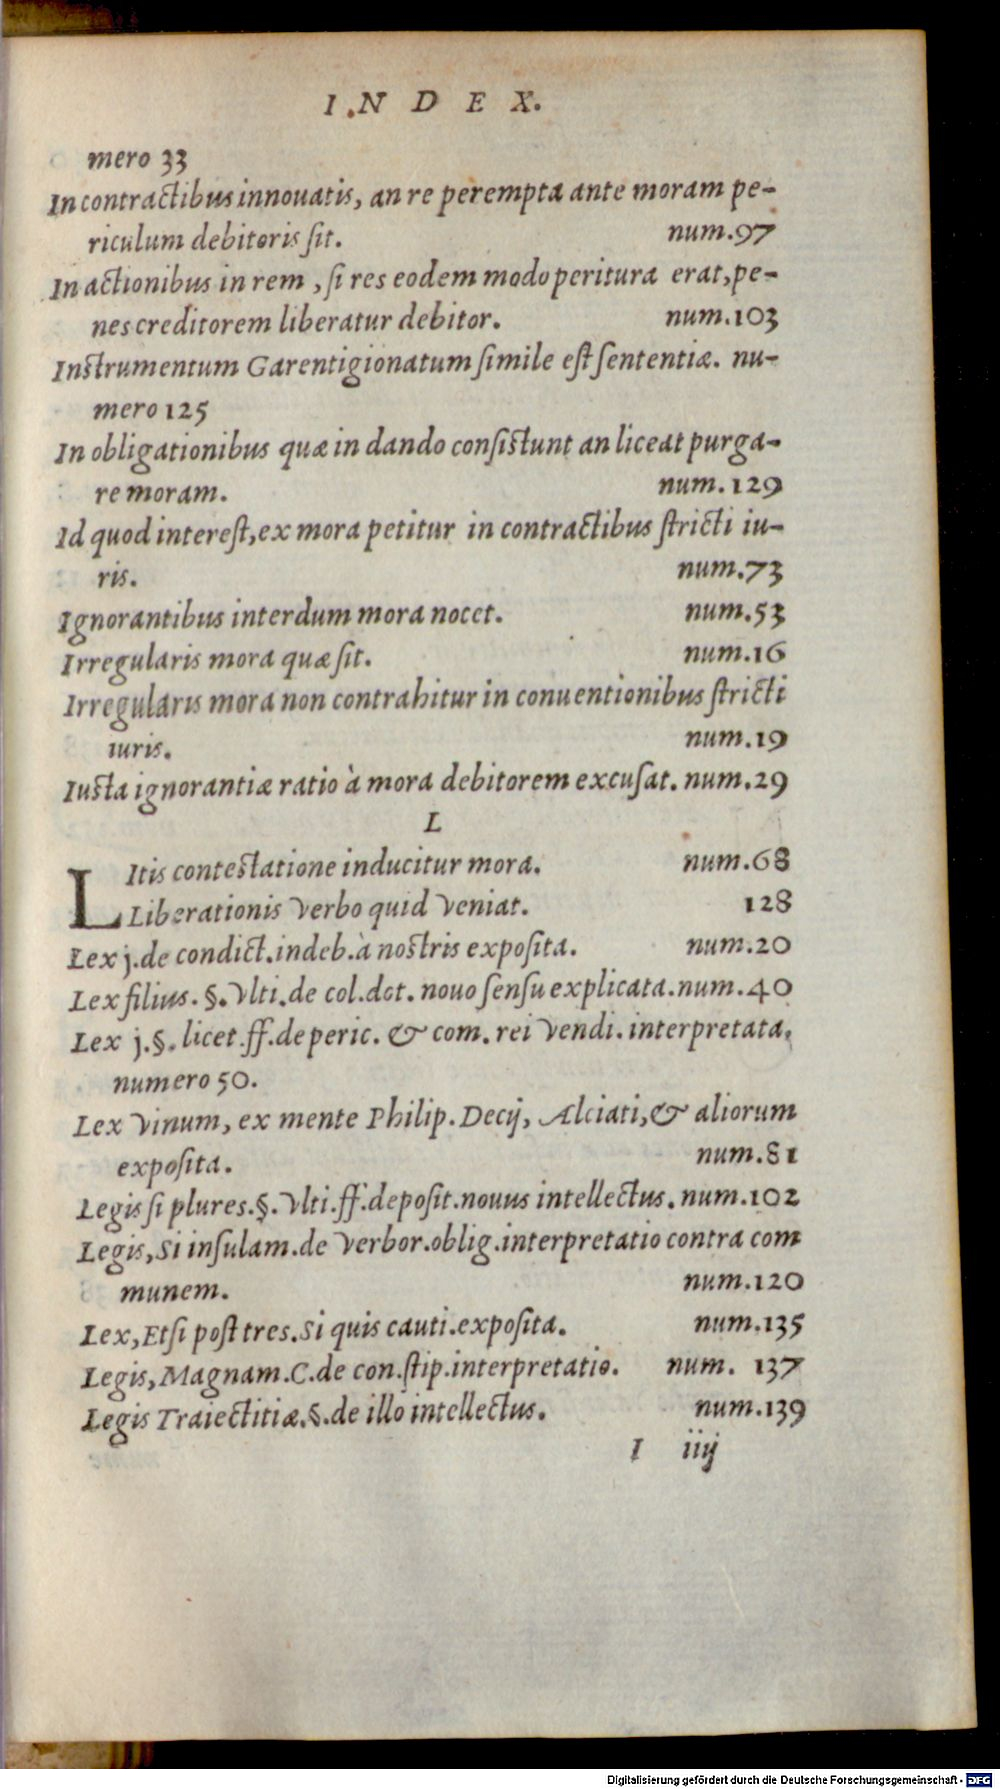 I.N D E X.
mero 33
In contractibus innouatis, an re perempta ante moram pe-
riculum debitoris sit. num.97
In actionibus in rem, si res eodem modo peritura erat, pe-
nes creditorem liberatur debitor. num.103
Instrumentum Garentigionatum simile est sententiæ. nu-
mero 125
In obligationibus quæ in dando consistunt an liceat purga-
re moram. num.129
Id quod interest, ex mora petitur in contractibus stricti iu-
ris. num.73
Ignorantibus interdum mora nocet. num.53
Irregularis mora quæ sit. num.16
Irregularis mora non contrahitur in conuentionibus stricti
iuris. num.19
Iusta ignorantiæ ratio à mora debitorem excusat. num.29
L
LItis contestatione inducitur mora. num.68
Liberationis verbo quid veniat. 128
Lex j. de condict. indeb. à nostris exposita. num.20
Lex filius. §. vlti. de col. dot. nouo sensu explicata. num.40
Lex j. §. licet. ff. de peric. & com. rei vendi. interpretata.
numero 50.
Lex vinum, ex mente Philip. Decij, Alciati, & aliorum
exposita. num.81
Legis si plures. §. vlti. ff. deposit. nouus intellectus. num.102
Legis, Si insulam. de verbor. oblig. interpretatio contra com
munem. num.120
Lex, Etsi post tres. Si quis cauti. exposita. num.135
Legis, Magnam. C. de con. stip. interpretatio. num. 137
Legis Traiectitiæ. §. de illo intellectus. num.139
I iiij
Digitalisierung gefördert durch die Deutsche Forschungsgemeinschaft - DFG